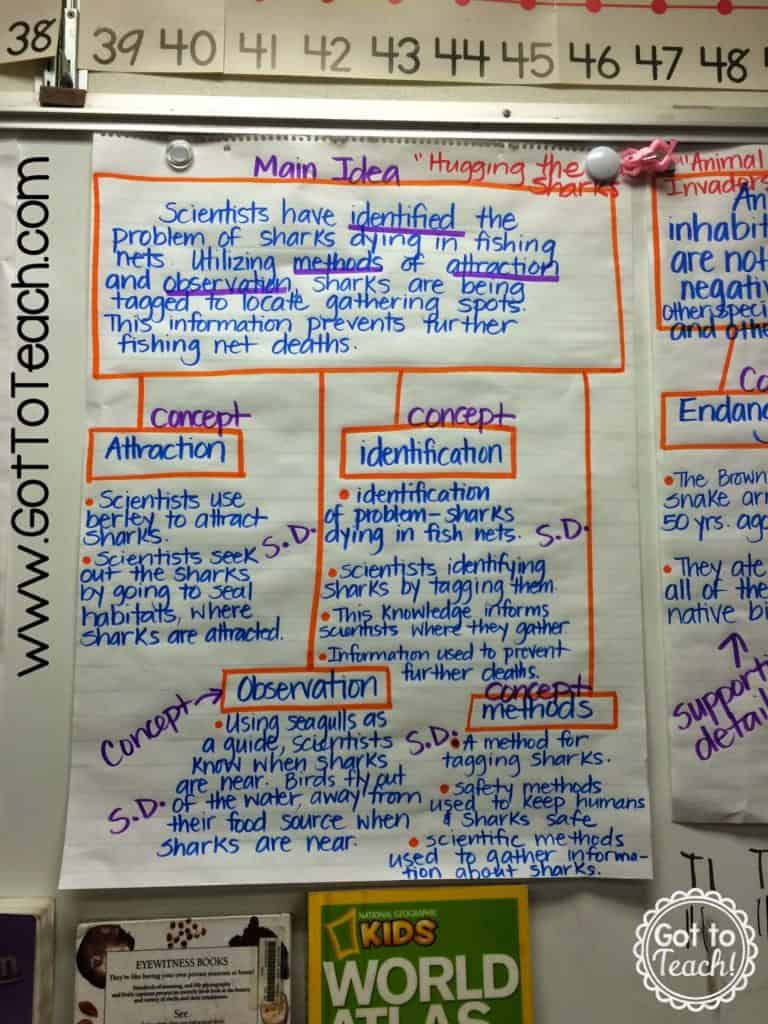 38 39 40 41 42 43 44 45 46 47 48
www.GotToTeach.com
Main Idea "Hugging the
Sharks
Scientists have identified the
problem of sharks dying in fishing
nets. Utilizing methods of attraction
and observation, sharks are being
tagged to locate gathering spots.
This information prevents further
fishing net deaths.
concept
Attraction
• Scientists use
berley to attract
sharks.
S.D.
• Scientists seek
out the sharks
by going to seal
habitats, where
sharks are attracted.
concept
identification
• identification
of problem-sharks
dying in fish nets.
S.D.
• scientists identifying
sharks by tagging them.
• This knowledge informs
scientists where they gather.
• Information used to prevent
further deaths.
Concept→
Observation
• Using seagulls as
a guide, scientists
know when sharks
are near. Birds fly out
S.D. of the water, away from
their food source when
sharks are near.
concept
methods
S.D: • A method for
tagging sharks.
• safety methods
used to keep humans
& sharks safe
• scientific methods
used to gather informa-
tion about sharks.
"Animal
Invaders
An
inhabit
are not
negativ
other speci
and othe
Co
Endang
• The Brown
snake arr
50 yrs. ago
• They ate
all of the
native bi
supporti
detail
T1
EYEWITNESS BOOKS
They're like having your own private museum at home!
See
NATIONAL GEOGRAPHIC
KIDS
WORLD
ATLAS
Got to
Teach!